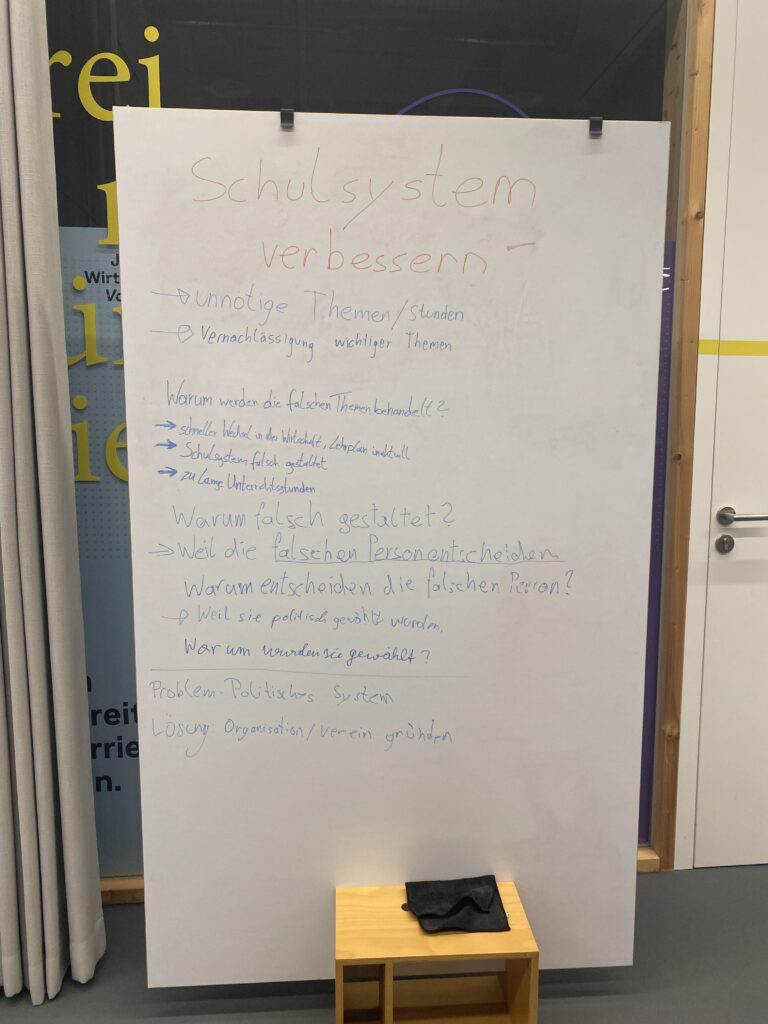 rei
Schulsystem
verbessern
unnötige Themen/Stunden
Vernachlässigung wichtiger Themen
Warum werden die falschen Themen behandelt?
schneller Wechsel in der Wirtschaft, Lehrplan inaktuell
Schulsystem falsch gestaltet
zu lange Unterrichtsstunden
Warum falsch gestaltet?
Weil die falschen Person entscheiden
Warum entscheiden die falschen Person?
Weil sie politisch gewählt wurden.
Warum wurden sie gewählt?
Problem: Politisches System
Lösung: Organisation/Verein gründen
J
Wirt
Vo
ie
reit
rrie
n.